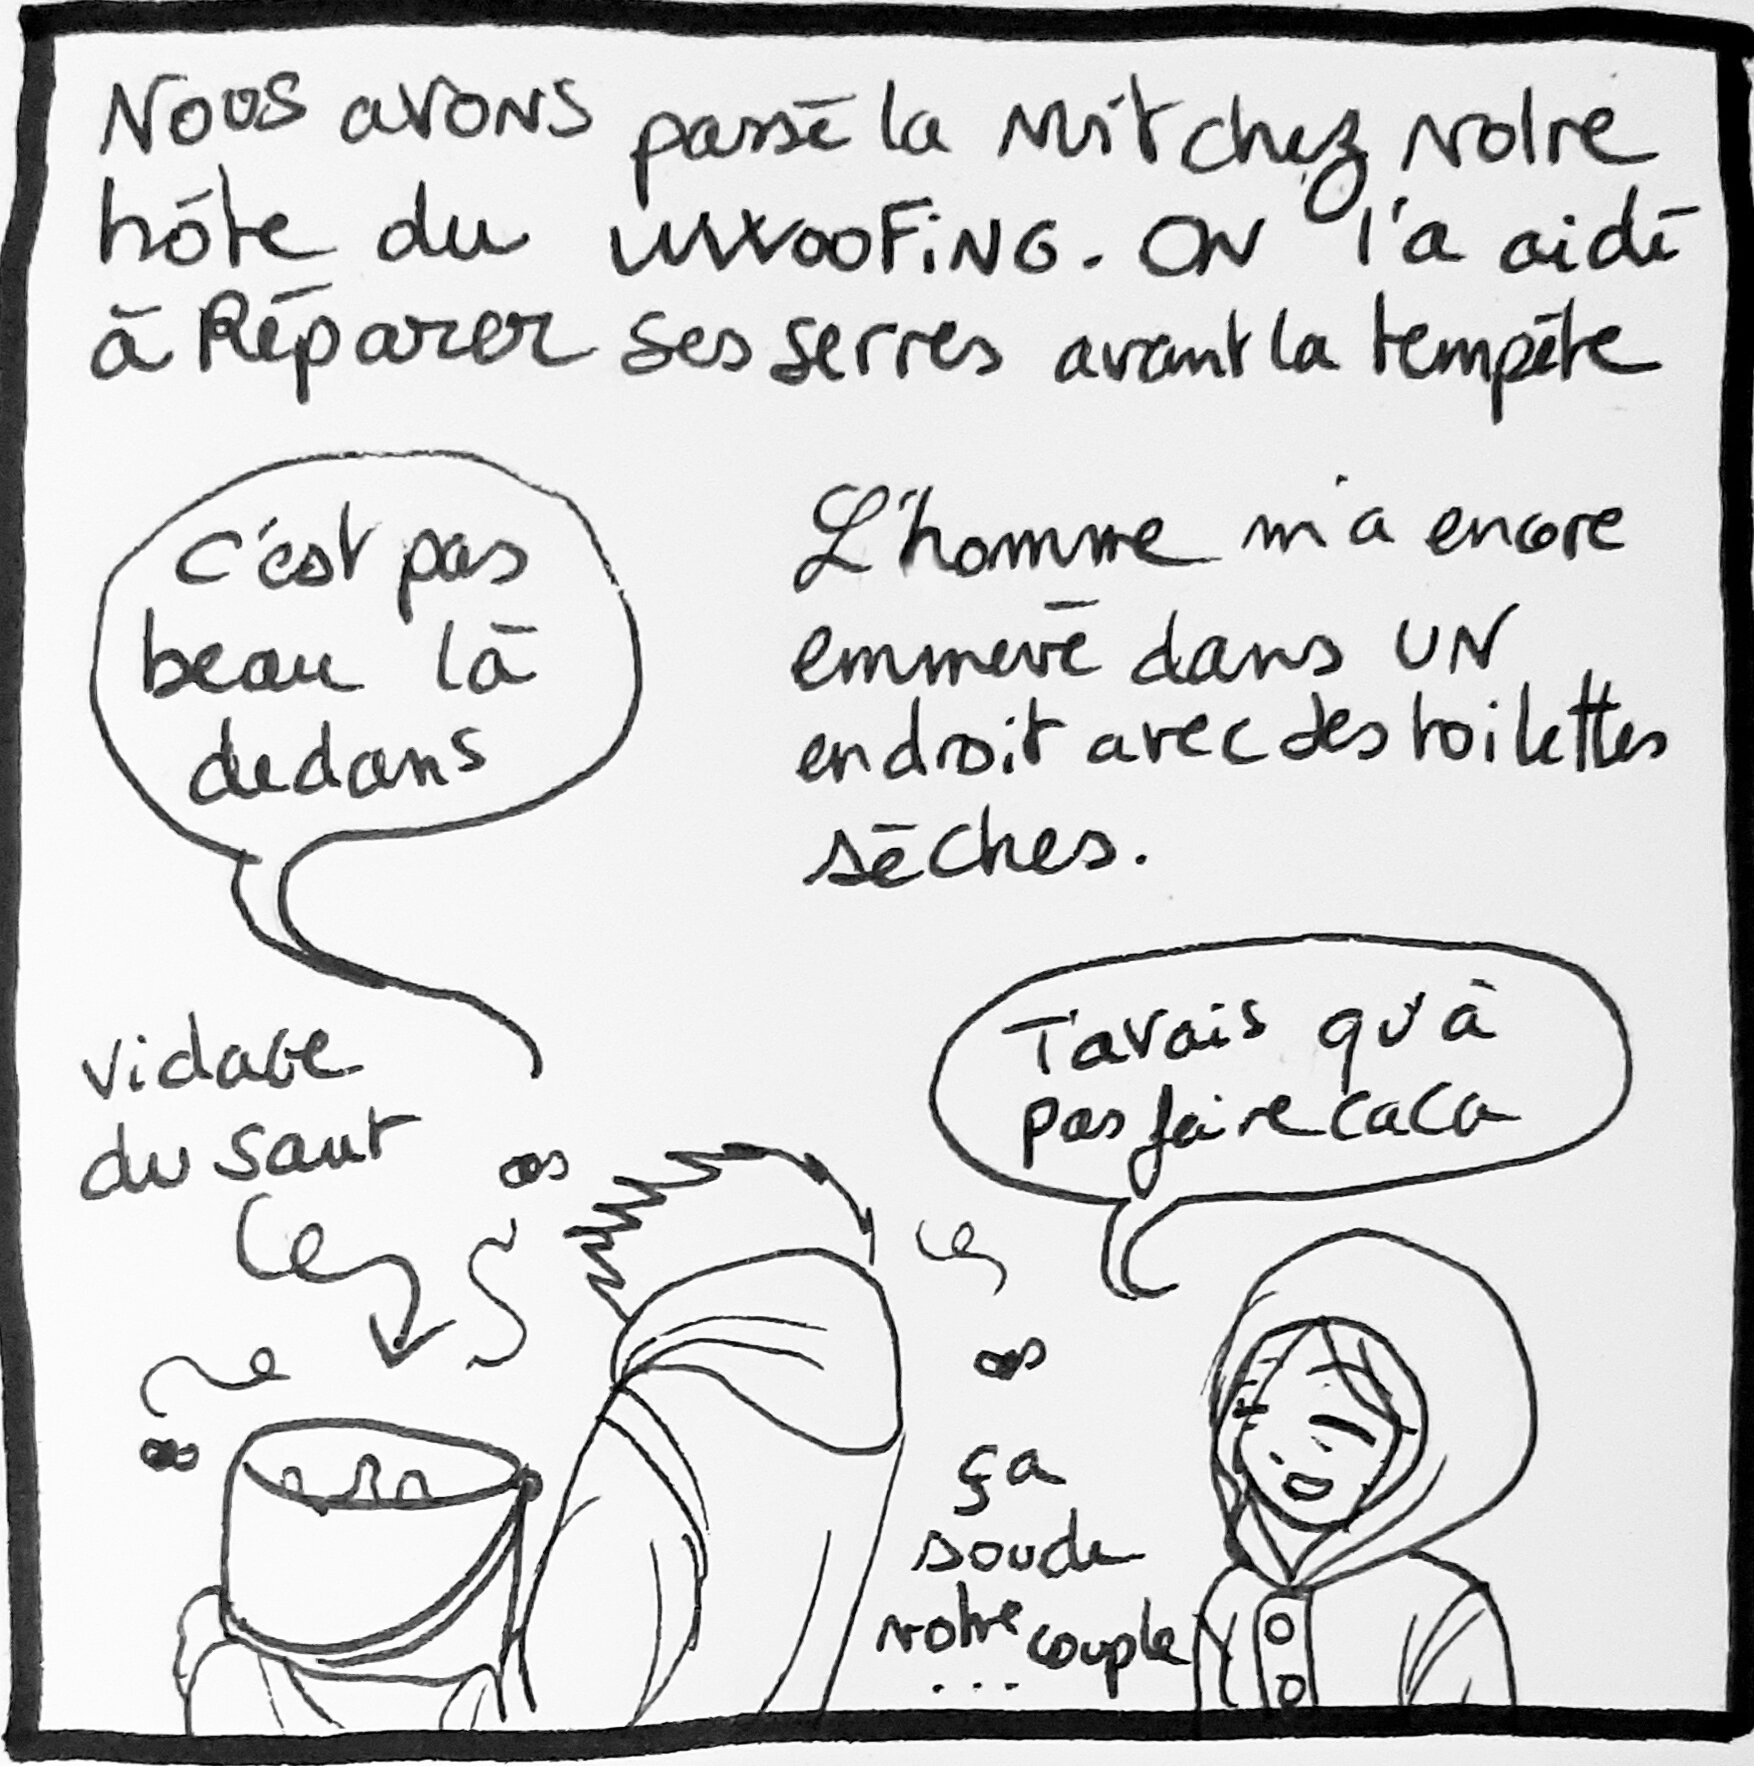 Nous avons passé la nuit chez notre
hôte du WWOOFING. ON l'a aidé
à Réparer ses serres avant la tempête
C'est pas
beau là
dedans
L'homme m'a encore
emmené dans UN
endroit avec des toilettes
sèches.
vidage
du saut
T'avais qu'à
pas faire caca
ça
soude
notre couple
...